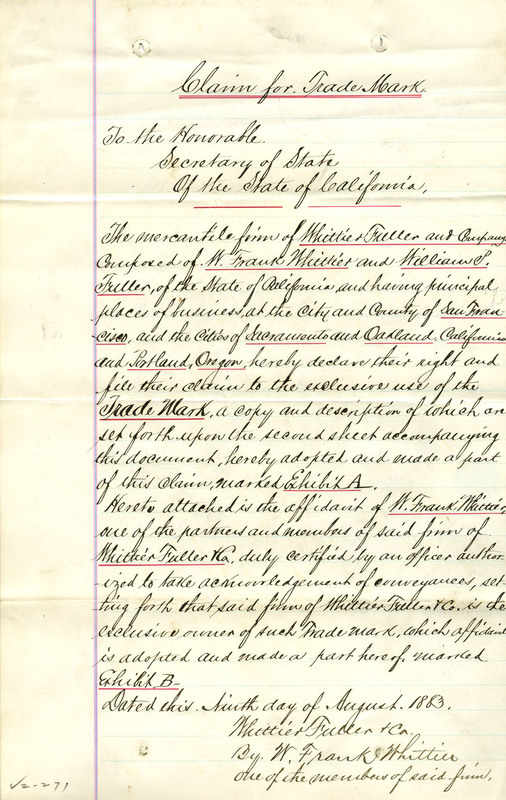 Claim for Trade Mark.
To the Honorable.
Secretary of State
Of the State of California.
The mercantile firm of Whittier Fuller and Company
Composed of W. Frank Whittier and William P.
Fuller, of the State of California and having principal
places of business, at the City and County of San Fran-
-cisco, and the Cities of Sacramento and Oakland, California
and Portland, Oregon, hereby declare their right and
file their claim to the exclusive use of the
Trade Mark, a copy and description of which are
set forth upon the second sheet accompanying
this document, hereby adopted and made a part
of this claim, marked Exhibit A.
Hereto attached is the affidavit of W. Frank Whittier,
one of the partners and members of said firm of
Whittier Fuller & Co, duly certified by an officer author-
-ized to take acknowledgement of conveyances, set-
ting forth that said firm of Whittier Fuller & Co. is the
exclusive owner of such Trade mark, which affidavit
is adopted and made a part hereof, marked
Exhibit B-
Dated this Ninth day of August. 1883.
Whittier Fuller & Co
By. W. Frank Whittier
one of the members of said firm.
V2-271